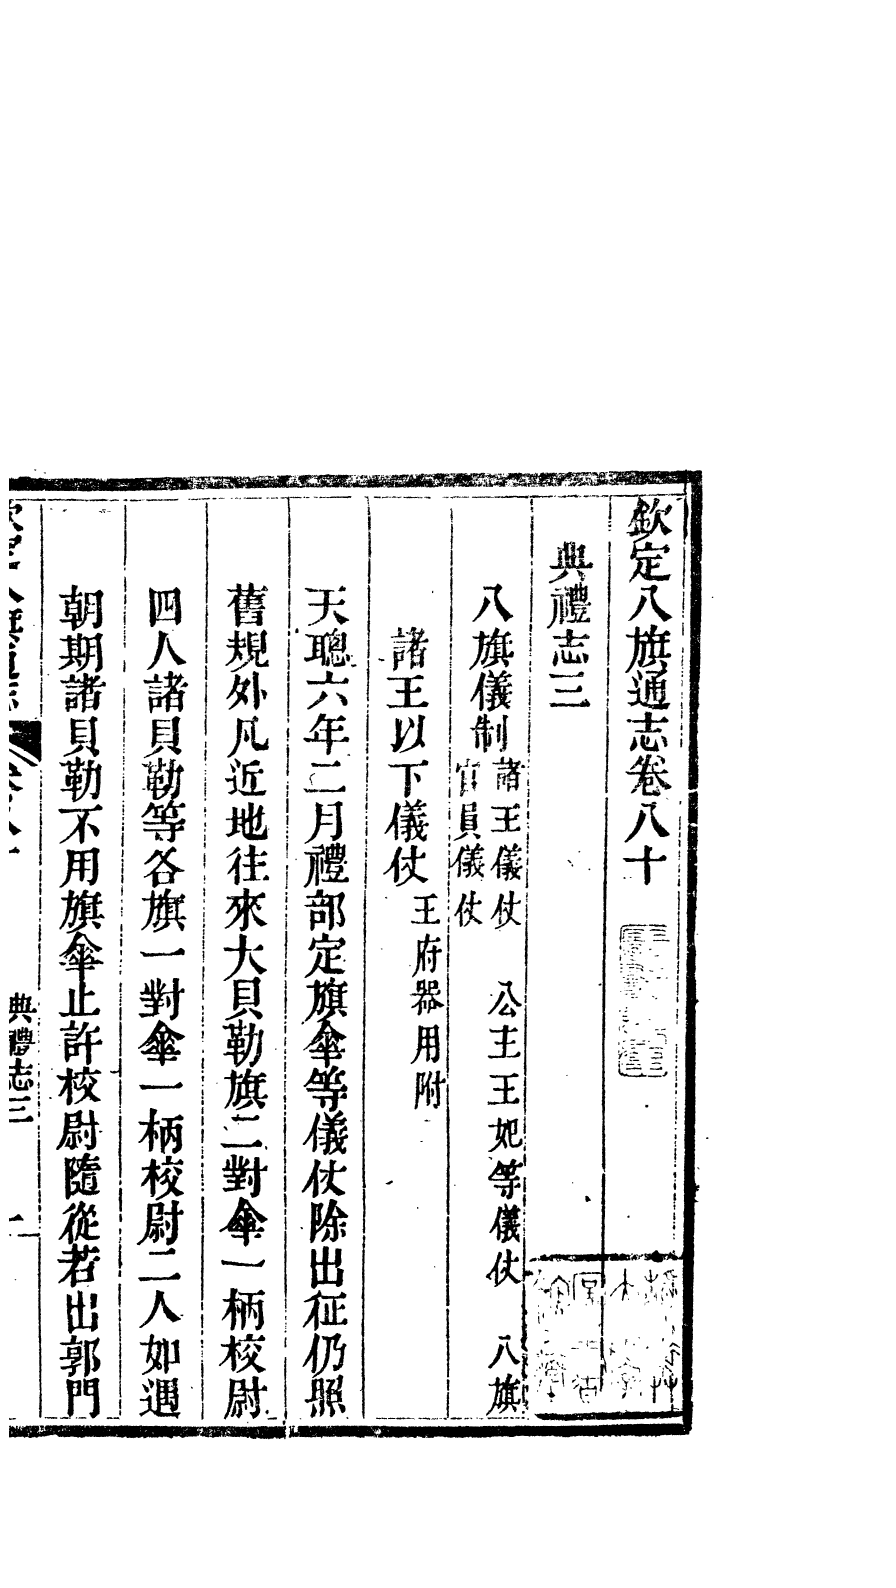 欽定八旗通志卷八十
典禮志三
八旗儀制諸王儀仗　公主王妃等儀仗　八旗
官員儀仗
諸王以下儀仗王府器用附
天聰六年二月禮部定旗傘等儀仗除出征仍照
舊規外凡近地往來大貝勒旗二對傘一柄校尉
四人諸貝勒等各旗一對傘一柄校尉二人如遇
朝期諸貝勒不用旗傘止許校尉隨從若出郭門
典禮志三　一